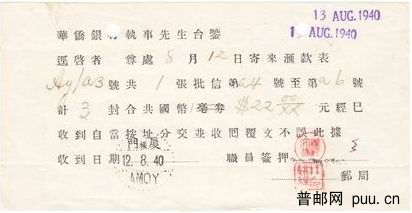 13 AUG.1940
13 AUG.1940
華僑銀行執事先生台鑒
逕啓者 尊處8月12日寄來滙款表
Ay/a3號共1張批信第a4號至第a6號
計3封合共國幣毫券$22元經已
收到自當按址分交並收囘覆文不誤此據
收到日期 職員簽押
郵局
廈門
12.8.40
AMOY
普邮网 puu.cn